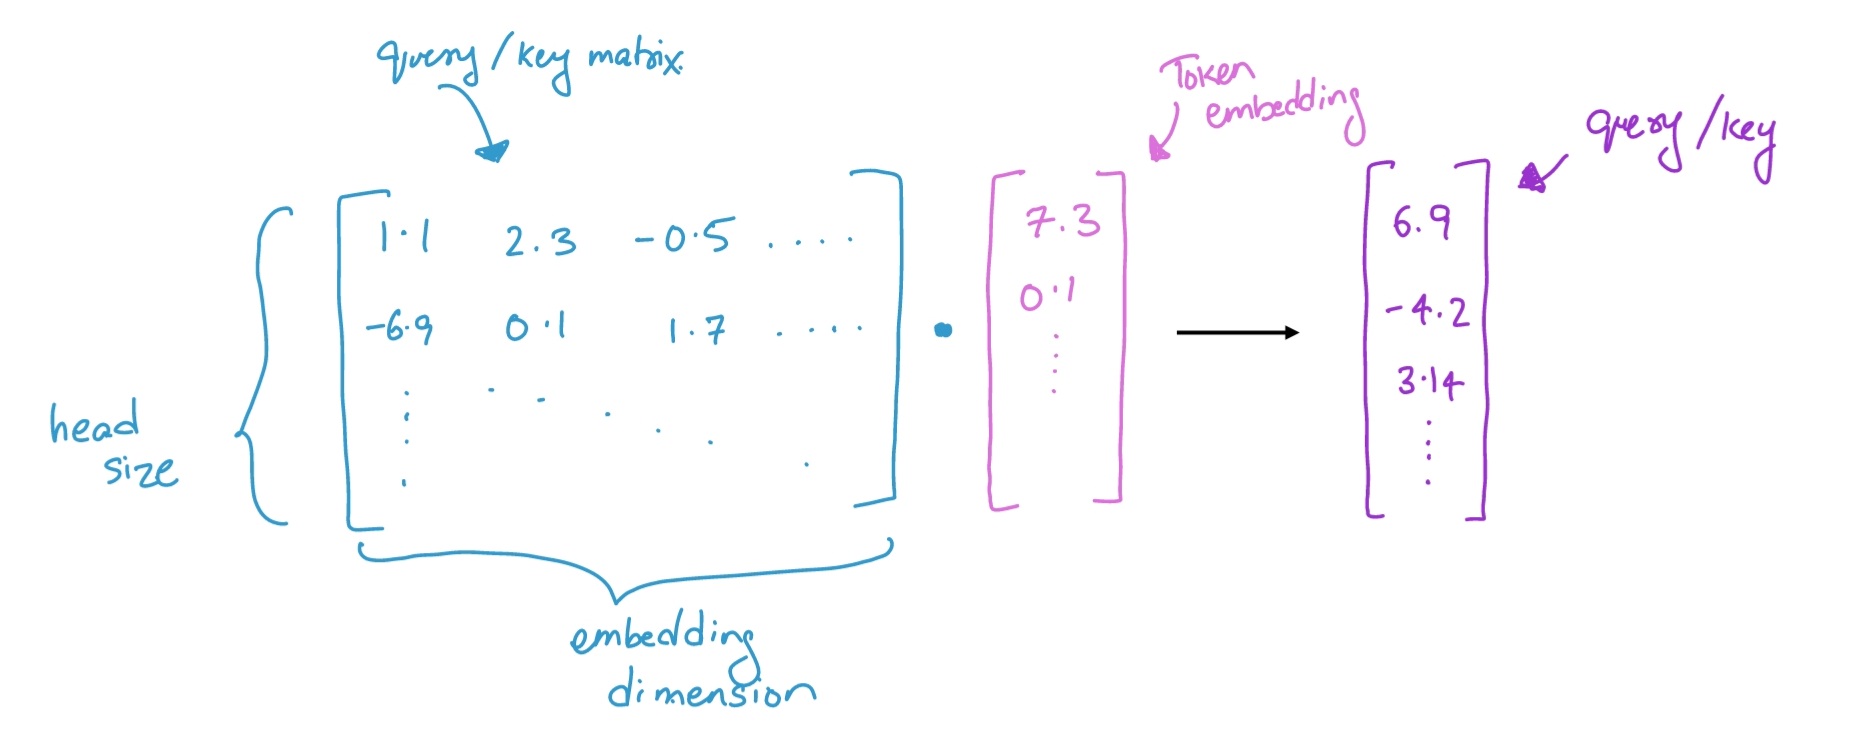 query/key matrix
Token
embedding
query/key
1.1 2.3 -0.5 ....
-6.9 0.1 1.7 ....
7.3
0.1
6.9
-4.2
3.14
head
size
embedding
dimension